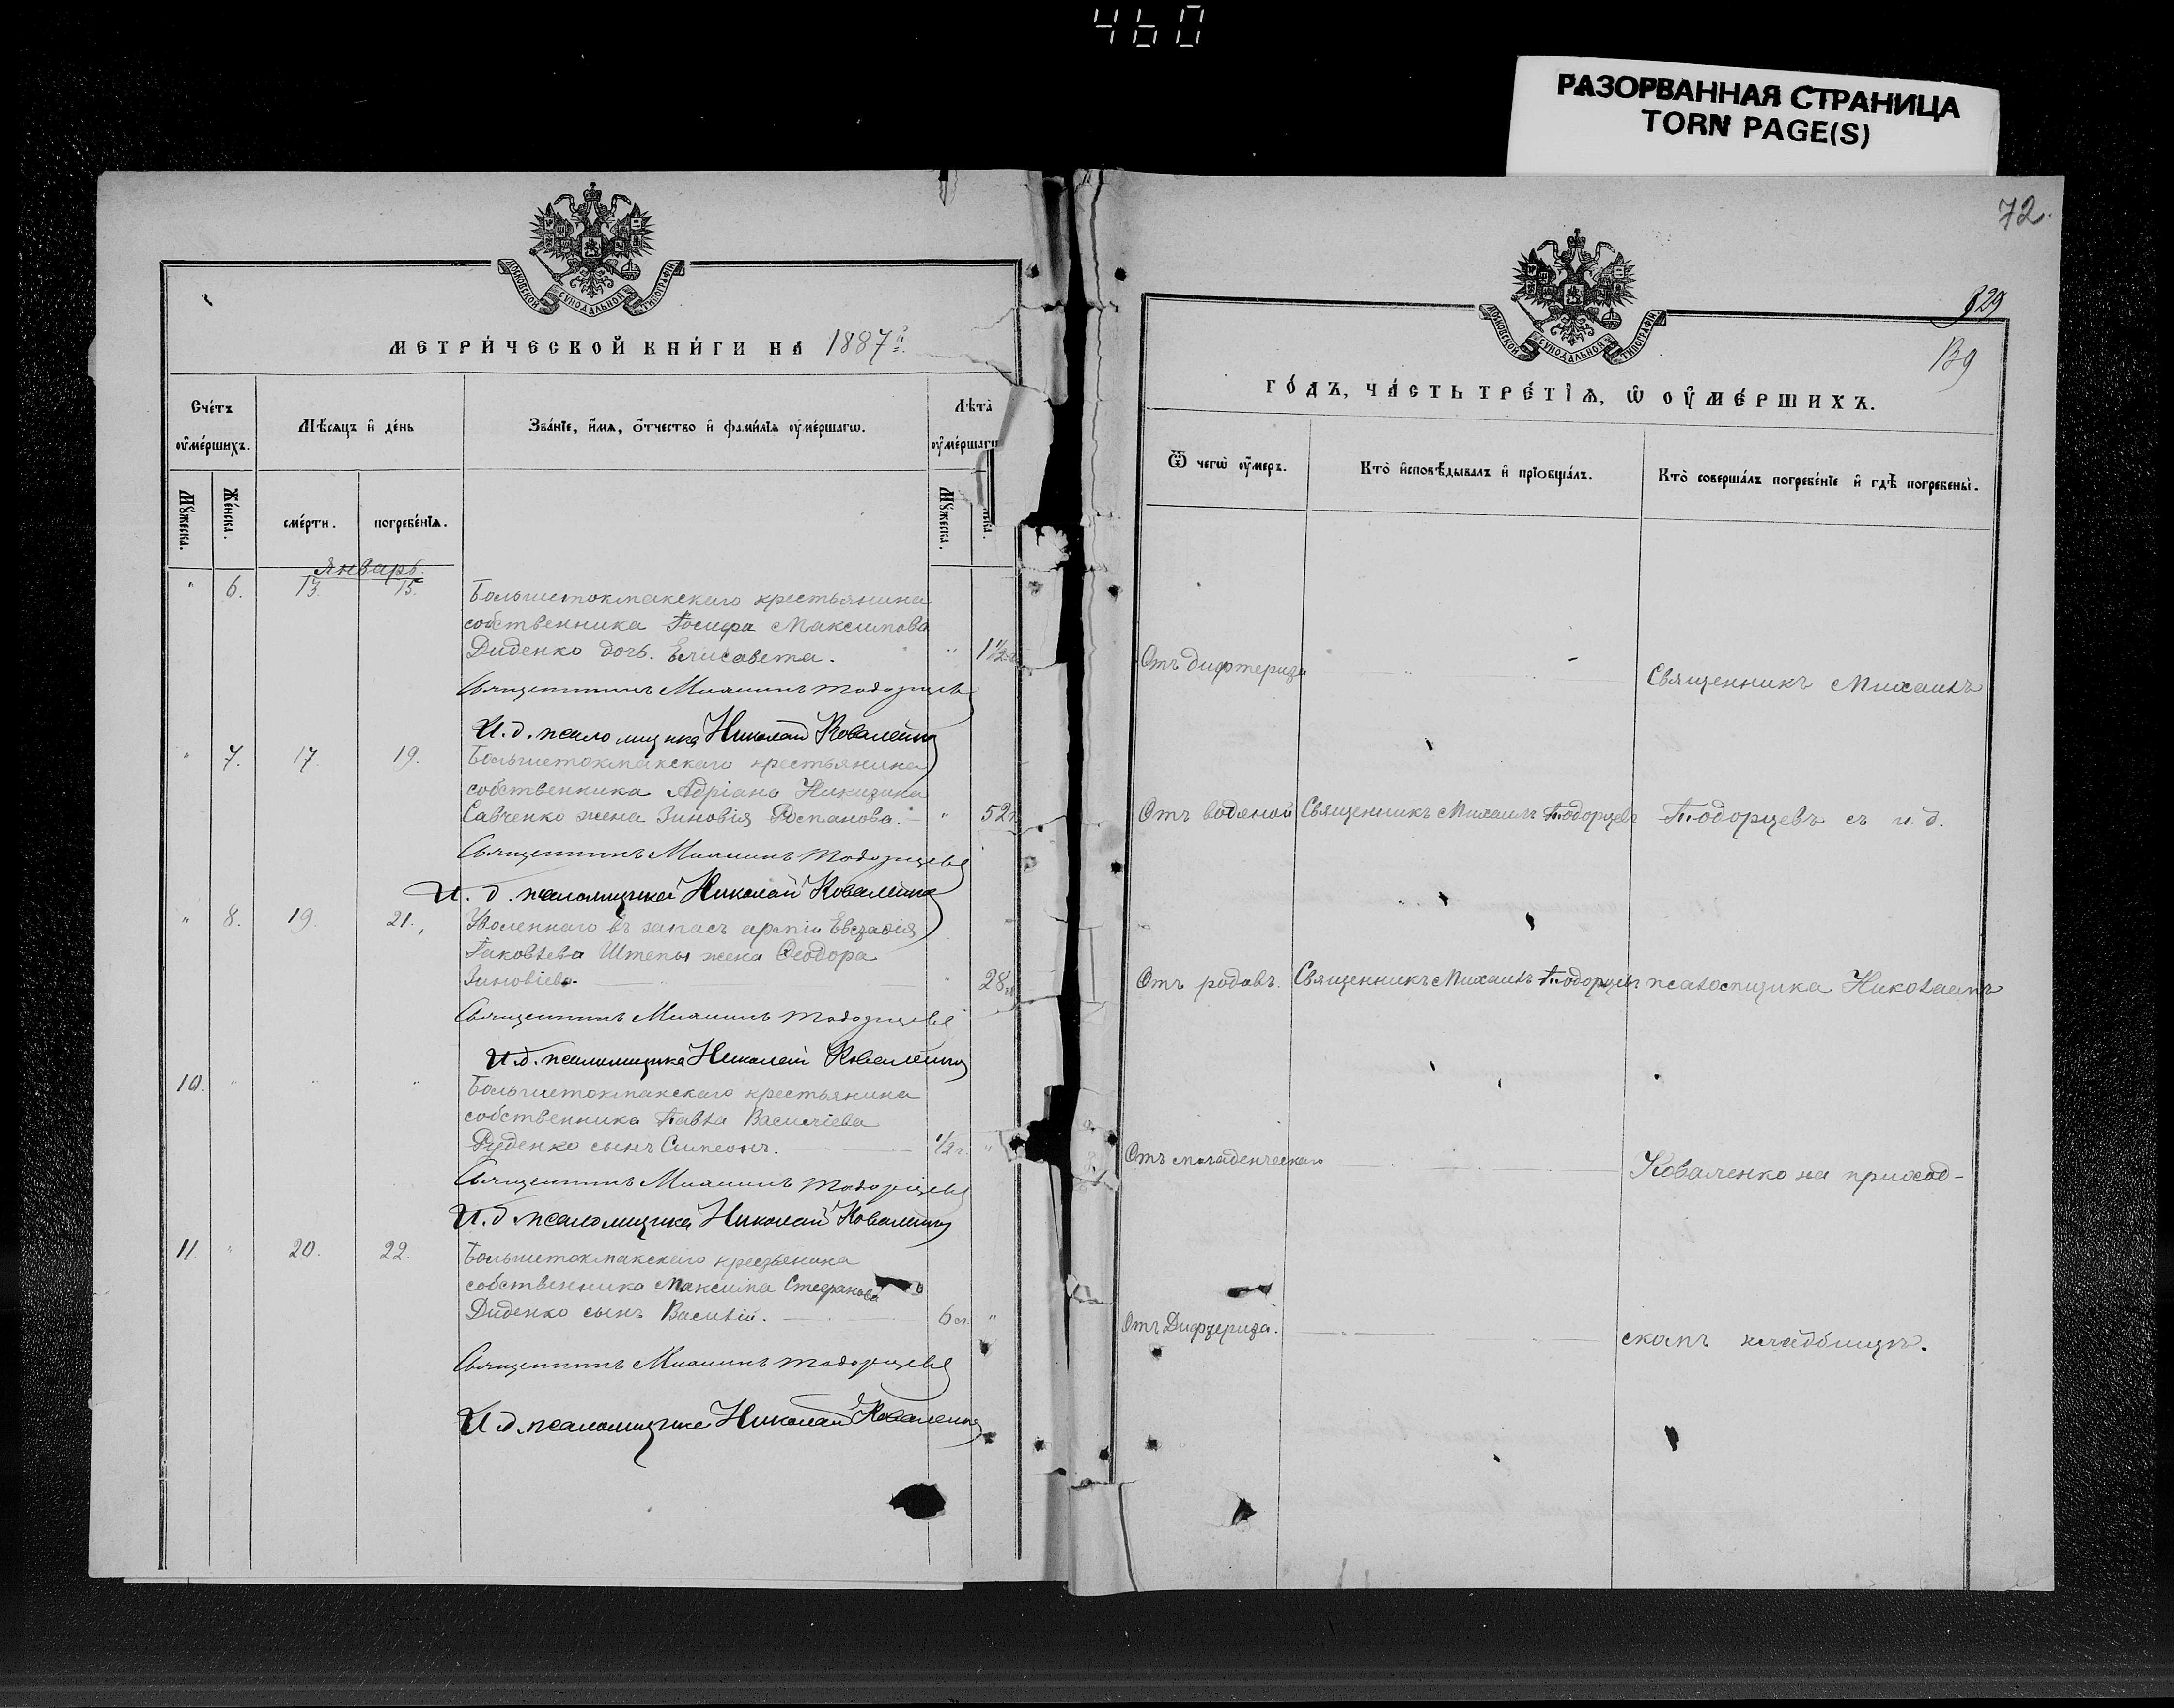 460
РАЗОРВАННАЯ СТРАНИЦА
TORN PAGE(S)
МОСКОВСКОЙ СѴНОДАЛЬНОЙ ТИПОГРАФІИ
МЕТРИ́ЧЕСКОЙ КНИ́ГИ НА 1887й
Сче́тъ оумéршихъ.
Мѣ́сяцъ и де́нь
Зва́нїе, и́мя, о́тчество и фами́лїя оумéршагѡ.
Лѣта̀ оумéршагѡ
Мꙋ́жеска.
Же́нска.
сме́рти.
погребе́нїѧ.
Мꙋ́жеска.
Январь.
" 6. 13. 15. Большетокмакскаго крестьянина
собственника Іосифа Максимова
Диденко дочь Елисавета. " 1 1/2 г.
Священникъ Михаилъ Тодорцевъ
И. д. псаломщика Николай Коваленко
" 7. 17. 19. Большетокмакскаго крестьянина
собственника Адріана Никизина
Савченко жена Зиновія Романова. " 52 г.
Священникъ Михаилъ Тодорцевъ
И. д. псаломщика Николай Коваленко
" 8. 19. 21. Уволеннаго въ запасъ арміи
Іаковлева Штепы жена Ѳеодора
Зиновіева. " 28 л.
Священникъ Михаилъ Тодорцевъ
И. д. псаломщика Николай Коваленко
10. " " " Большетокмакскаго крестьянина
собственника Павла Василіева
Диденко сынъ Симеонъ. 1/2 г. "
Священникъ Михаилъ Тодорцевъ
И. д. псаломщика Николай Коваленко
11. " 20. 22. Большетокмакскаго крестьянина
собственника Максима Стефанова
Диденко сынъ Василій. 6 л. "
Священникъ Михаилъ Тодорцевъ
И. д. псаломщика Николай Коваленко
72.
МОСКОВСКОЙ СѴНОДАЛЬНОЙ ТИПОГРАФІИ
829
139
ГО́ДЪ, ЧА́СТЬ ТРЕ́ТЇѦ, Ѡ ОУМЕ́РШИХЪ.
Ѿ чегѡ̀ оу́меръ.
Кто̀ исповѣ́дывалъ и прїобща́лъ.
Кто̀ соверша́лъ погребе́нїе и гдѣ̀ погребены̀.
Отъ дифтерита
Священникъ Михаилъ
Отъ водяной Священникъ Михаилъ Тодорцевъ Тодорцевъ съ и. д.
Отъ родовъ. Священникъ Михаилъ Тодорцевъ псаломщика Николаемъ
Отъ младенческаго Коваленко на приход-
Отъ Дифтерита. скомъ кладбищѣ.